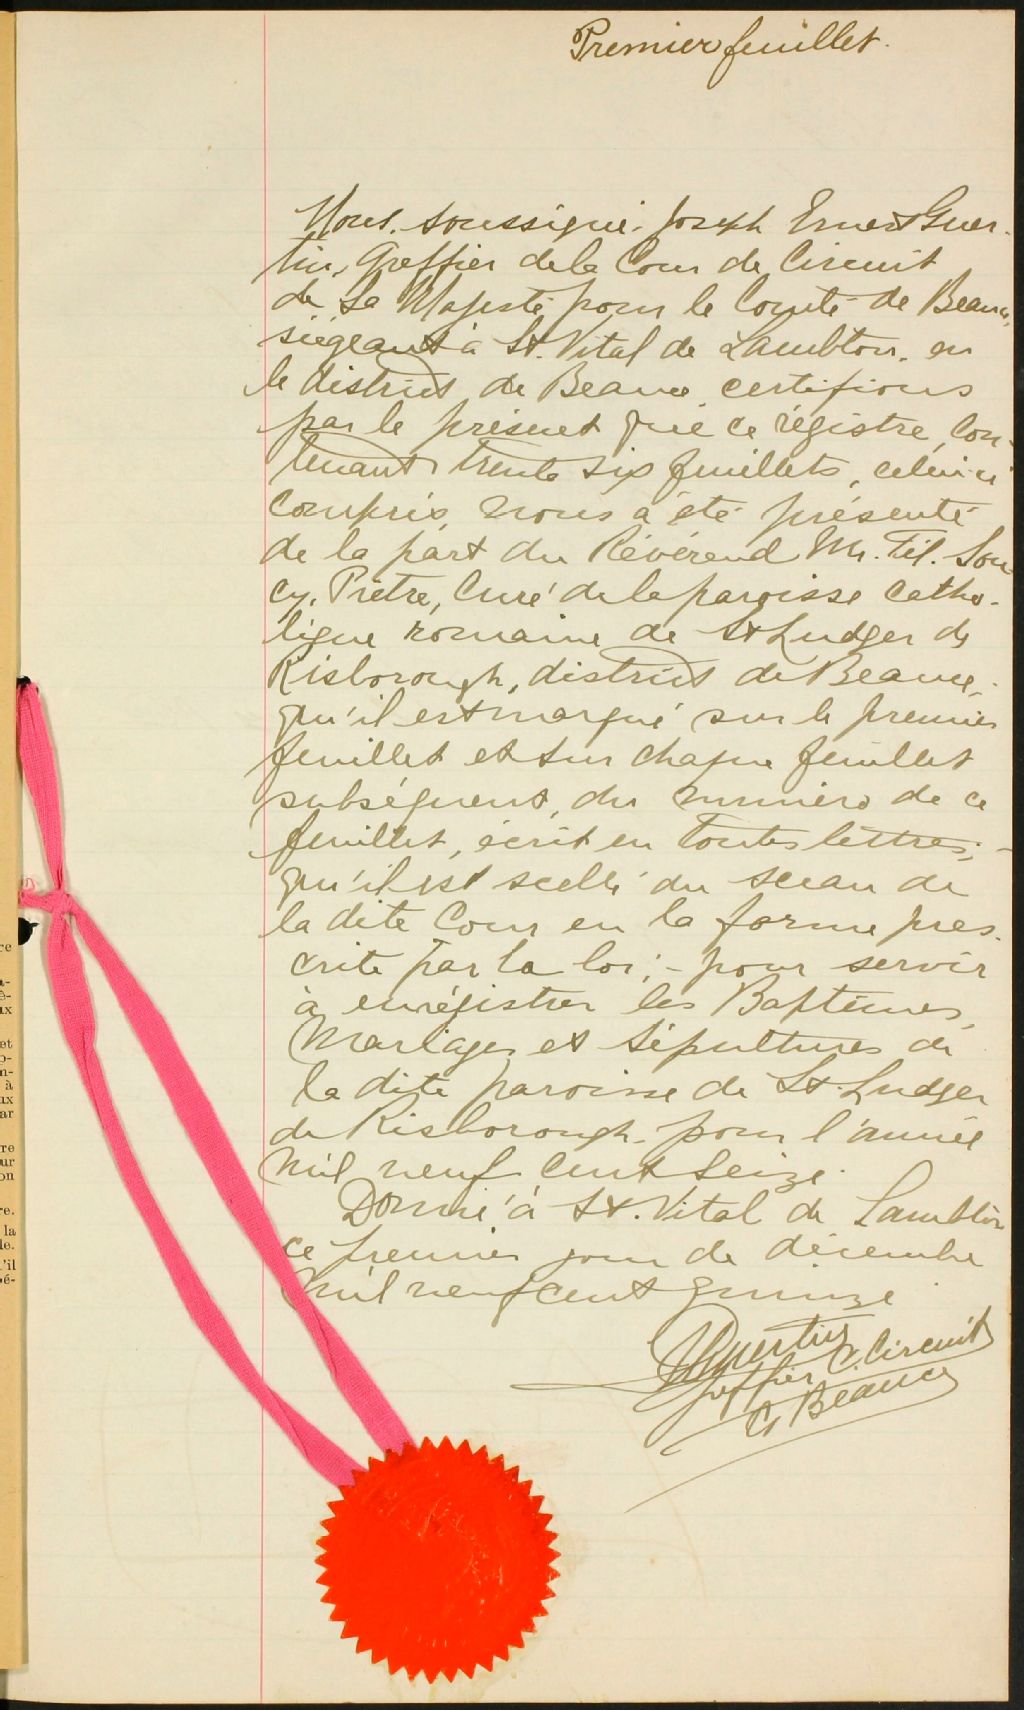 Premier feuillet.
Nous, soussigné, Joseph Ernest Guer-
tin, Greffier de la Cour de Circuit
de Sa Majesté pour le Comté de Beauce,
siégeant à St. Vital de Lambton, en
le district de Beauce, certifions
par le présent que ce régistre, con-
tenant trente six feuillets, celui-ci
compris, nous a été présenté
de la part du Révérend Mr. Fél. Sou-
cy, Prêtre, Curé de la paroisse catho-
lique romaine de St Ludger de
Risborough, district de Beauce,
qu'il est marqué sur le premier
feuillet et sur chaque feuillet
subséquent, du numéro de ce
feuillet, écrit en toutes lettres; -
qu'il est scellé du sceau de
la dite Cour en la forme pres-
crite par la loi; - pour servir
à enrégistrer les Baptêmes,
Mariages et Sépultures de
la dite paroisse de St. Ludger
de Risborough, pour l'année
mil neuf cent seize.
Donné à St. Vital de Lambton
ce premier jour de décembre
mil neuf cent quinze
Guertin
Greffier C. Circuit
Ct Beauce
re
a-
ê-
ux
et
o-
n-
à
ux
ar
re
ur
on
re.
la
le.
'il
pé-